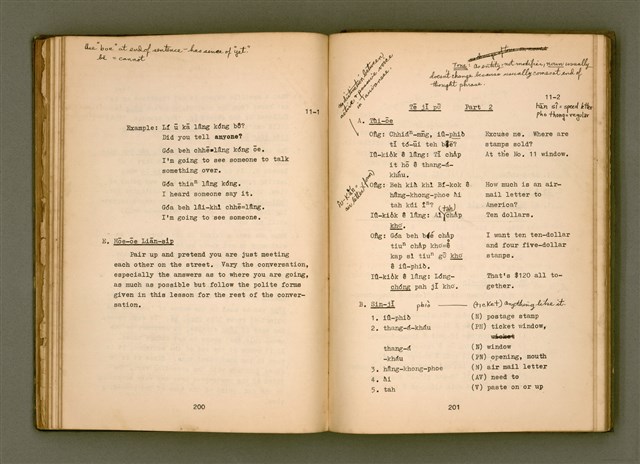 Use "bue" at end of sentence — has sense of "yet"
11-1
Example: Lí ū kā lâng kóng bô?
Did you tell anyone?
Góa beh chhē lâng kóng ōe.
I'm going to see someone to talk
something over.
Góa thiaⁿ lâng kóng.
I heard someone say it.
Góa beh lâi-khì chhē-lâng.
I'm going to see someone.
E. Hōe-ōe Liān-si̍p
Pair up and pretend you are just meeting
each other on the street. Vary the conversation,
especially the answers as to where you are going,
as much as possible but follow the polite forms
given in this lesson for the rest of the conver-
sation.
200
Tone: As entity, not modifier, noun usually
doesn't change because usually comes at end of
thought phrase.
11-2
Tē jī pō Part 2
A. Tùi-ōe
Ông: Chhiáⁿ-mn̄g, iû-phiò
tī tó-ūi teh bōe?
Excuse me. Where are
stamps sold?
Iû-kio̍k ê lâng: Tī cha̍p
it hō ê thang-á-
kháu.
At the No. 11 window.
Ông: Beh kià khì Bí-kok ê
hâng-khong-phoe ài
tah kúi
How much is an air-
mail letter to
America?
Iû-kio̍k ê lâng: Ài cha̍p
kho͘.
(tah)
Ten dollars.
Ông: Góa beh bóe cha̍p
tiuⁿ cha̍p kho͘ ê
kap sì tiuⁿ gō͘ kho͘
ê iû-phiò.
I want ten ten-dollar
and four five-dollar
stamps.
Iû-kio̍k ê lâng: Lóng-
chóng pah jī kho͘.
That's $120 all to-
gether.
B. Sin-jī
phiò
anything like it.
1. iû-phiò (N) postage stamp
2. thang-á-kháu (PN) ticket window,
thang-á (N) window
-kháu (PN) opening, mouth
3. hâng-khong-phoe (N) air mail letter
4. ài (AV) need to
5. tah (V) paste on or up
201